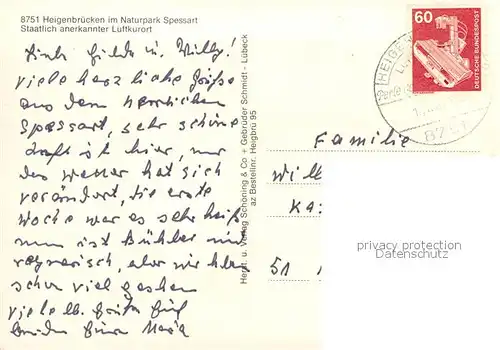 8751 Heigenbrücken im Naturpark Spessart
Staatlich anerkannter Luftkurort
Gilda u. Willy!
viele herzliche Grüße
aus dem herrlichen
Spessart, sehr schöne
Luft ist hier, nur
das Wetter hat sich
verändert, die erste
Woche war es sehr heiß
nun ist kühler und
regnerisch, aber wir haben
schon viel gesehen
viele lb. Grüße
Maria
Herst. u. Verlag Schöning & Co + Gebrüder Schmidt - Lübeck
az Bestellnr. Heigbrü 95
60
DEUTSCHE BUNDESPOST
HEIGE
Perle
8751
Familie
Will
Ka
51
privacy protection
www.oldthing.com